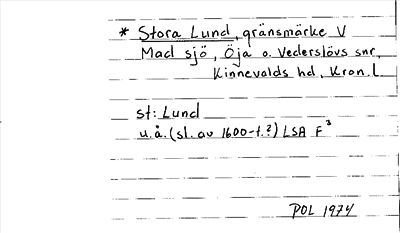 * Stora Lund, gränsmärke V
Madsjö, Öja o. Vederslövs snr,
Kinnevalds hd, Kron. l
st: Lund
u.å. (sl. av 1600-t.?) LSA F³
POL 1974